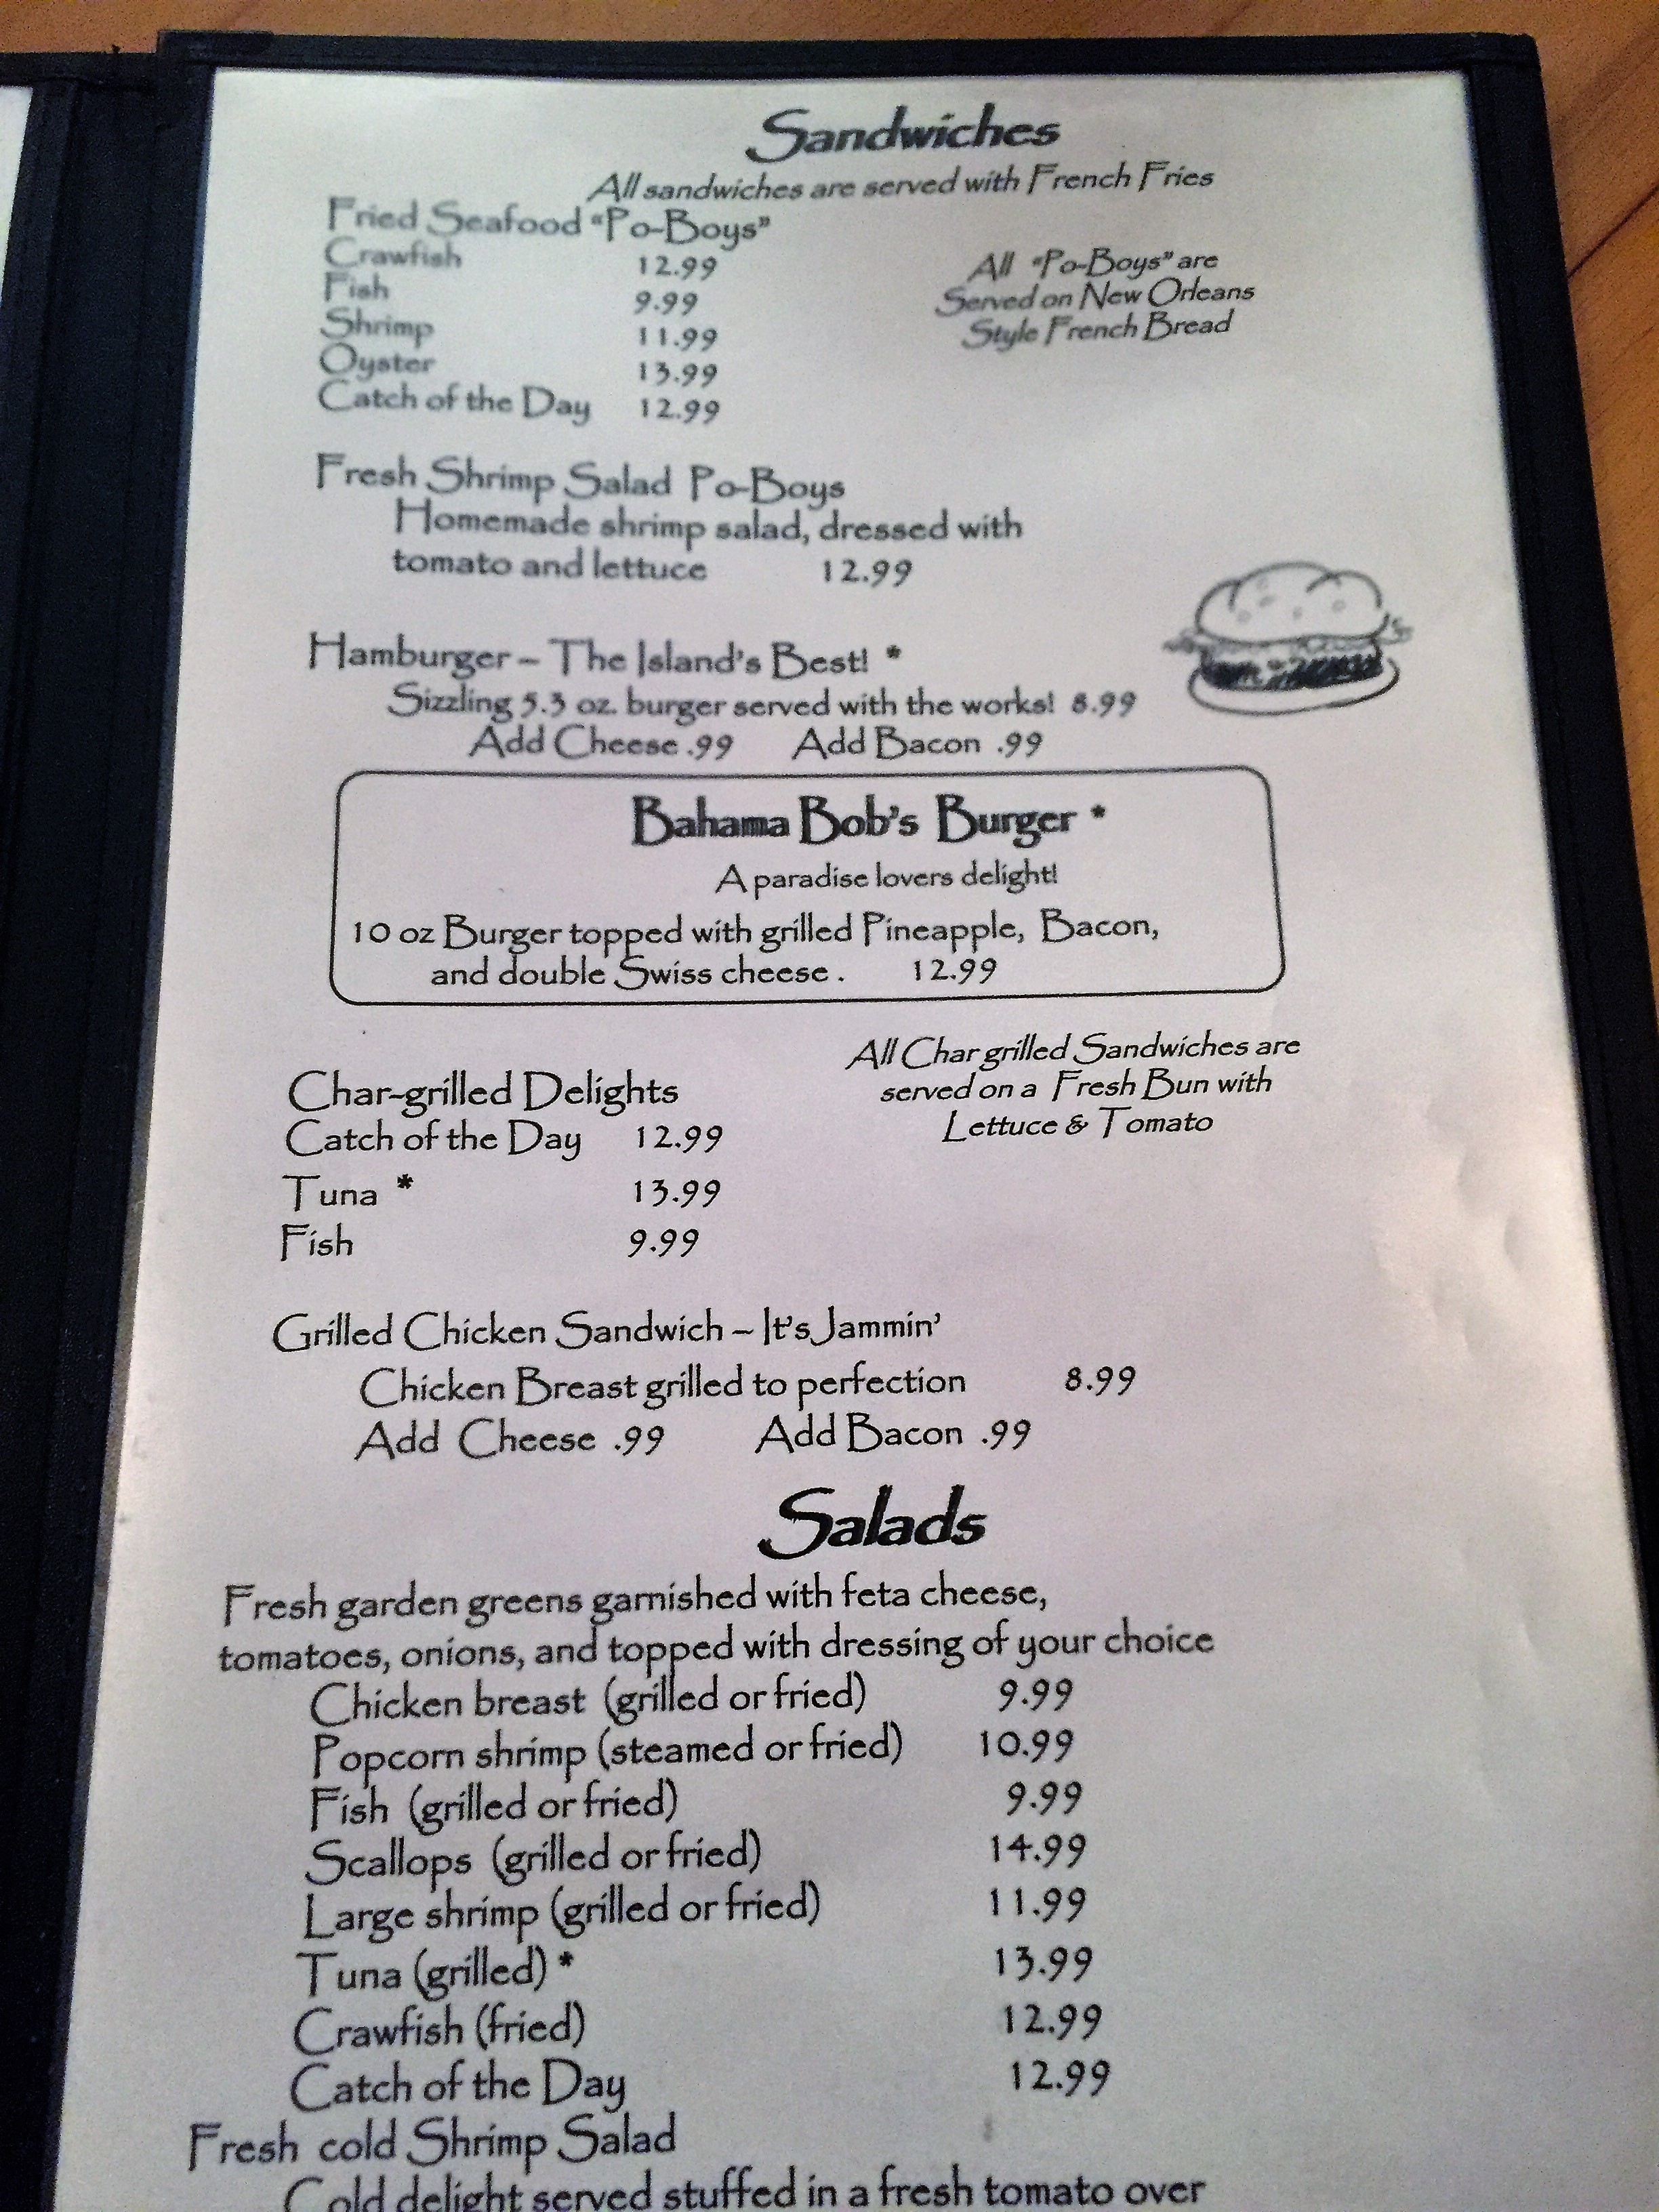 Sandwiches
All sandwiches are served with French Fries
Fried Seafood “Po-Boys”
Crawfish 12.99
Fish 9.99
Shrimp 11.99
Oyster 13.99
Catch of the Day 12.99
All “Po-Boys” are
Served on New Orleans
Style French Bread
Fresh Shrimp Salad Po-Boys
Homemade shrimp salad, dressed with
tomato and lettuce 12.99
Hamburger – The Island’s Best! *
Sizzling 5.3 oz. burger served with the works! 8.99
Add Cheese .99 Add Bacon .99
Bahama Bob’s Burger *
A paradise lovers delight!
10 oz Burger topped with grilled Pineapple, Bacon,
and double Swiss cheese . 12.99
All Char grilled Sandwiches are
served on a Fresh Bun with
Lettuce & Tomato
Char-grilled Delights
Catch of the Day 12.99
Tuna * 13.99
Fish 9.99
Grilled Chicken Sandwich – It’s Jammin’
Chicken Breast grilled to perfection 8.99
Add Cheese .99 Add Bacon .99
Salads
Fresh garden greens garnished with feta cheese,
tomatoes, onions, and topped with dressing of your choice
Chicken breast (grilled or fried) 9.99
Popcorn shrimp (steamed or fried) 10.99
Fish (grilled or fried) 9.99
Scallops (grilled or fried) 14.99
Large shrimp (grilled or fried) 11.99
Tuna (grilled) * 13.99
Crawfish (fried) 12.99
Catch of the Day 12.99
Fresh cold Shrimp Salad
Cold delight served stuffed in a fresh tomato over